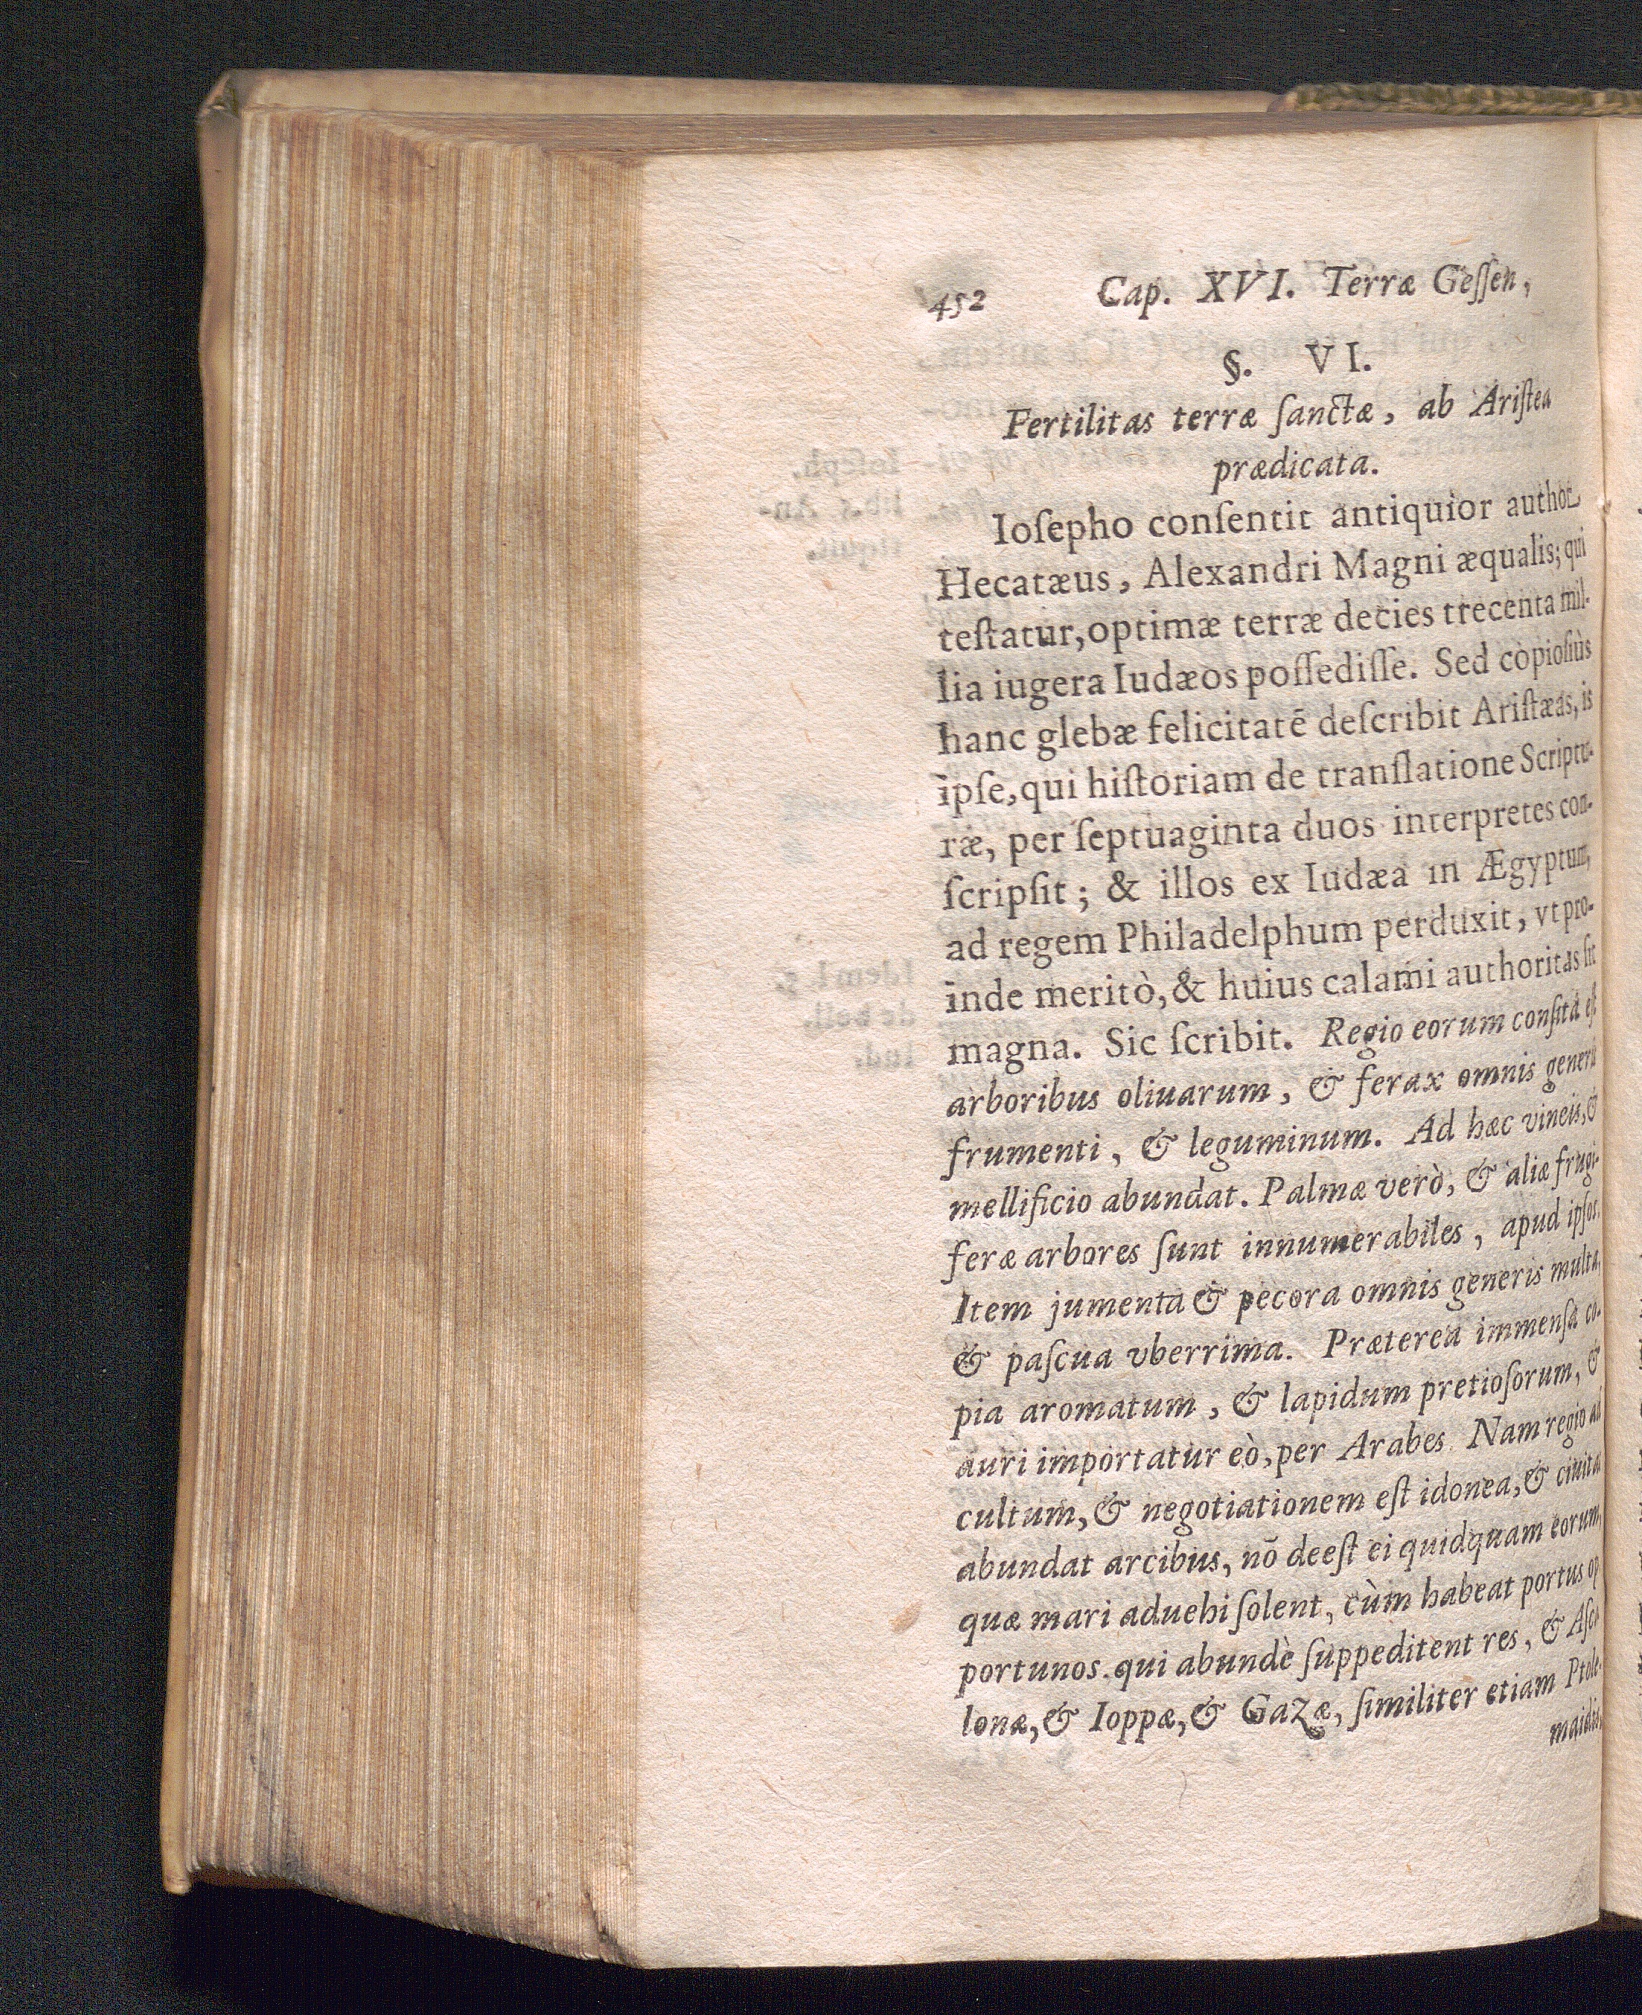 452 Cap. XVI. Terræ Geſſen,
§. VI.
Fertilitas terræ ſanctæ, ab Ariſtea
prædicata.
Ioſepho conſentit antiquior author
Hecatæus, Alexandri Magni æqualis; qui
teſtatur, optimæ terræ decies trecenta mil-
lia iugera Iudæos poſſediſſe. Sed copioſiùs
hanc glebæ felicitatē deſcribit Ariſtæas, is
ipſe, qui hiſtoriam de tranſlatione Scriptu-
ræ, per ſeptuaginta duos interpretes con-
ſcripſit; & illos ex Iudæa in Ægyptum,
ad regem Philadelphum perduxit, vt pro-
inde meritò, & huius calami authoritas ſit
magna. Sic ſcribit. Regio eorum conſita eſt
arboribus oliuarum, & ferax omnis generis
frumenti, & leguminum. Ad hæc vineis, &
mellificio abundat. Palmæ verò, & aliæ frugi-
feræ arbores ſunt innumerabiles, apud ipſos.
Item jumenta & pecora omnis generis multa,
& paſcua vberrima. Præterea immenſa co-
pia aromatum, & lapidum pretioſorum, &
auri importatur eò, per Arabes. Nam regio ad
cultum, & negotiationem eſt idonea, & ciuitas
abundat arcibus, nō deeſt ei quidquam eorum,
quæ mari aduehi ſolent, cùm habeat portus op
portunos. qui abundè ſuppeditent res, & Aſca
lonæ, & Ioppæ, & Gazæ, ſimiliter etiam Ptole-
maidis